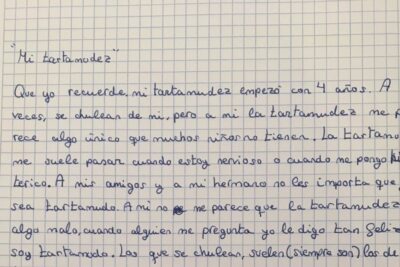 "Mi tartamudez"
Que yo recuerde, mi tartamudez empezó con 4 años. A
veces, se chulean de mi, pero a mi la tartamudez me pa
rece algo único que muchos niños no tienen. La tartamu
me suele pasar cuando estoy nervioso o cuando me pongo hi
terico. A mis amigos y a mi hermano no les importa que
sea tartamudo. A mi no me parece que la tartamudez
algo malo, cuando alguien me pregunta yo le digo tan feliz
soy tartamudo. Los que se chulean, suelen (siempre son) los de